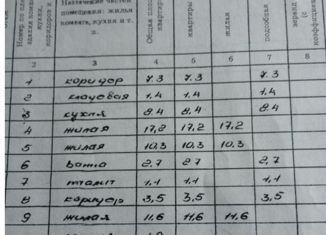 Номер по
здания
кухня,
коридоров и
Назначение частей
помещения: жилая
комната, кухня и т.
п.
Общая
квартиры
квартиры
жилая
подсобная
коэффициент
2 3 4 5 6 7 8
1 коридор 7.3 7.3 7.3
2 кладовая 1,4 1,4 1,4
3 кухня 8.4 8.4 8.4
4 жилая 17,2 17,2 17,2
5 жилая 10,3 10.3 10.3
6 ванна 2,7 2,7 2,7
7 туалет 1,1 1,1 1,1
8 коридор 3,5 3,5 3,5
9 жилая 11,6 11,6 11,6